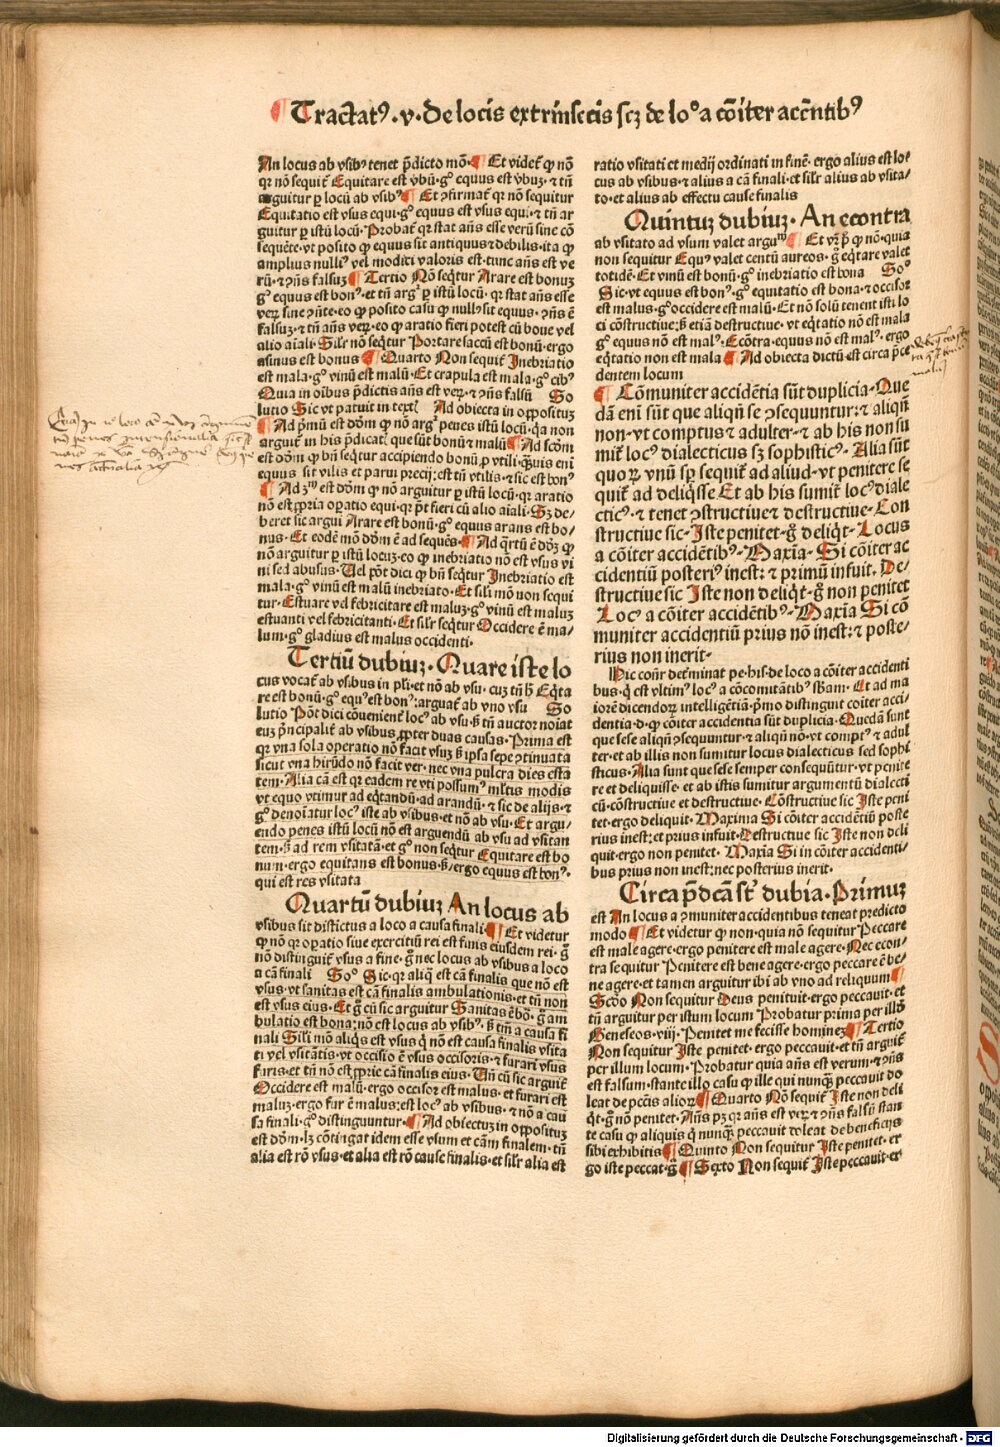 ¶ Tractatꝰ .v. De locis extrinsecis scꝫ de loᵒ a cōiter accn̄tibꝰ
An locus ab vsibꝰ tenet p̄dicto mō. ¶ Et videt᷑ ꝙ nō
qꝛ nō sequit᷑ Equitare est vbū. gͦ equus est vbuꝫ. ⁊ tn̄
arguitur ꝑ locū ab vsibꝰ ¶ Et ꝯfirmat᷑ qꝛ nō sequitur
Equitatio est vsus equi. gͦ equus est vsus equi. ⁊ tn̄ ar
guitur ꝑ istū locū. Probat᷑ qꝛ stat an̄s esse verū sine cō
sequēte. vt posito ꝙ equus sit antiquus ⁊ debilis. ita ꝙ
amplius nulliꝰ vel modici valoris est. tunc an̄s est ve
rū. ⁊ ꝯn̄s falsuꝫ ¶ Tertio Nō seq̄tur Arare est bonuꝫ
gͦ equus est bonꝰ. et tn̄ argʳ ꝑ istū locū. qꝛ stat an̄s esse
veꝝ sine ꝯn̄te. eo ꝙ posito casu ꝙ nullꝰ sit equus. ꝯn̄s ē
falsuꝫ. ⁊ tn̄ an̄s veꝝ. eo ꝙ aratio fieri potest cū boue vel
alio aīali. Silr nō seq̄tur Portare saccū est bonū. ergo
asinus est bonus ¶ Quarto Non sequit᷑ Inebriatio
est mala. gͦ vinū est malū. Et crapula est mala. gͦ cibꝰ
Quia in oībus p̄dictis an̄s est veꝝ. ⁊ ꝯn̄s falsū So
lutio Sic vt patuit in textu Ad obiecta in oppositus
¶ Ad pʳmū est dōm ꝙ nō argʳ penes istū locū. qa non
arguit᷑ in his p̄dicatꝭ que sūt bonū ⁊ malū ¶ Ad scōm
est dōm. ꝙ bn̄ seq̄tur accipiendo bonū ꝓ vtili. qᷓuis eni
equus sit vilis et parui precij. est tn̄ vtilis. ⁊ sic est bonꝰ
¶ Ad 3ᵐ est dōm ꝙ nō arguitur ꝑ istū locū. qꝛ aratio
nō est ꝓpria oꝑatio equi. qꝛ pt̄ fieri cū alio aīali. Sꝫ de⸗
beret sic argui Arare est bonū. gͦ equus arans est bo⸗
nus. Et eodē mō dōm ē ad sequēs. ¶ Ad qʳtū ē dōꝫ ꝙ
nō arguitur ꝑ istū locuꝫ. eo ꝙ inebriatio nō est vsus vi
ni sed abusus. Uel pōt dici ꝙ bn̄ seq̄tur Inebriatio est
mala. gͦ vinū est malū inebriato. Et sili mō non sequi
tur. Estuare vel febricitare est maluꝫ. gͦ vinū est maluꝫ
estuanti vel febricitanti. Et silr seq̄tur Occidere ē ma⸗
lum. gͦ gladius est malus occidenti.
Tertiū dubiuꝫ. Quare iste lo
cus vocat᷑ ab vsibus in pli. et nō ab vsu. cuꝫ tn̄ hꝭ Eq̄ta
re est bonū. gͦ equꝰ est bonꝰ: arguat᷑ ab vno vsu So
lutio Pōt dici cōuenient᷑ locꝰ ab vsu. ꝫ tn̄ auctor noīat
eum pʳncipalit᷑ ab vsibus ꝓpter duas causas. Prima est
qꝛ vna sola operatio nō facit vsuꝫ ꝫ ipsa sepe ꝯtinuata
sicut vna hirūdo nō facit ver. nec vna pulcra dies esta
tem. Alia cā est qꝛ eadem re vti possumꝰ mltis modis
vt equo vtimur ad eq̄tandū. ad arandū. ⁊ sic de alijs. ⁊
gͦ denoīatur locꝰ iste ab vsibus. et nō ab vsu. Et argu⸗
endo penes istū locū nō est arguendū ab vsu ad vsitan
tem. ꝫ ad rem vsitatā. et gͦ non seq̄tur Equitare est bo
num. ergo equitans est bonus. ꝫ. ergo equus est bonꝰ.
qui est res vsitata
Quartū dubiuꝫ An locus ab
vsibus sit distictus a loco a causa finali ¶ Et videtur
ꝙ nō qꝛ oꝑatio siue exercitiū rei est finis eiusdem rei. gͦ
nō distinguit᷑ vsus a fine. gͦ nec locus ab vsibus a loco
a cā finali Soᵒ Sic. qꝛ aliqᵈ est cā finalis que nō est
vsus. vt sanitas est cā finalis ambulationis. et tn̄ non
est vsus eius. Et gͦ cū sic arguitur Sanitas ē bō. gͦ am
bulatio est bona: nō est locus ab vsibꝰ. ꝫ tm̄ a causa fi
nali Sili mō aliqᵈs est vsus qͥ nō est causa finalis vsita
ti vel vsitātis. vt occisio ē vsus occisoris. ⁊ furari vsus
furis. et tn̄ nō est ꝓprie cā finalis eius. Un̄ cū sic arguit᷑
Occidere est malū. ergo occisor est malus. et furari est
maluꝫ. ergo fur ē malus: est locꝰ ab vsibus. ⁊ nō a cau
sa finali. gͦ distinguuntur. ¶ Ad obiectuꝫ in oppositus
est dōm. lꝫ cōtingat idem esse vsum et cām finalem. tn̄
alia est rō vsus. et alia est rō cause finalis. et silr alia est
ratio vsitati et medij ordinati in finē. ergo alius est lo⸗
cus ab vsibus. ⁊ alius a cā finali. et silr alius ab vsita⸗
to. et alius ab effectu cause finalis
Quintuꝫ dubiuꝫ. An econtra
ab vsitato ad vsum valet arguᵐ ¶ Et vr̄ ꝙ nō. quia
non sequitur Equꝰ valet centū aureos. gͦ eq̄tare valet
totidē. Et vinū est bonū. gͦ inebriatio est bona Soᵒ
Sic. vt equus est bonꝰ. gͦ equitatio est bona. ⁊ occisor
est malus. gͦ occidere est malū. Et nō solū tenent isti lo
ci cōstructiue: ꝫ etiā destructiue. vt eq̄tatio nō est mala
gͦ equus nō est malꝰ. Ecōtra. equus nō est malꝰ. ergo
eq̄tatio non est mala ¶ Ad obiecta dictū est circa p̄ce
dentem locum
¶ Cōmuniter accidētia sūt duplicia. Que
dā eni sūt que aliqn̄ se ꝯsequuntur: ⁊ aliqn̄
non. vt comptus ⁊ adulter. ⁊ ab his non su
mit᷑ locꝰ dialecticus sꝫ sophisticꝰ. Alia sūt
quoꝝ vnū sꝑ sequit᷑ ad aliud. vt penitere se
quit᷑ ad deliq̄sse Et ab his sumit᷑ locꝰ diale
cticꝰ. ⁊ tenet ꝯstructiue ⁊ destructiue. Con
structiue sic. Iste penitet. gͦ deliqᵗ. Locus
a cōiter accidētibꝰ. Maxia. Si cōiter ac
cidentiū posteriꝰ inest: ⁊ primū infuit. De⸗
structiue sic Iste non deliqᵗ. gͦ non penitet
Locꝰ a cōiter accidētibꝰ. Maxīa Si cō
muniter accidentiū prius nō inest: ⁊ poste⸗
rius non inerit.
Hic con̄r det᷑minat pe. his. de loco a cōiter accidenti
bus. qͥ est vltimꝰ locꝰ a cōcomitātibꝰ sbam. Et ad ma
iorē dicendoꝝ intelligētiā. pʳmo distinguit cōiter acci⸗
dentia. d. ꝙ cōiter accidentia sūt duplicia. Quedā sunt
que sese aliqn̄ ꝯsequuntur. ⁊ aliqn̄ nō. vt comptꝰ ⁊ adul
ter. et ab illis non sumitur locus dialecticus sed sophi
sticus. Alia sunt que sese semper consequūtur. vt penite
re et deliquisse. et ab istis sumitur argumentū dialecti
cū. cōstructiue et destructiue. Cōstructiue sic Iste peni
tet. ergo deliquit. Maxima Si cōiter accidētiū poste
rius inest: et prius infuit. Destructiue sic Iste non deli
quit. ergo non penitet. Maxīa Si in cōiter accidenti⸗
bus prius non inest: nec posterius inerit.
Circa p̄dcā st᷑ dubia. Primuꝫ
est An locus a ꝯmuniter accidentibus teneat predicto
modo ¶ Et videtur ꝙ non. quia nō sequitur Peccare
est male agere. ergo penitere est male agere. Nec econ⸗
tra sequitur Penitere est bene agere. ergo peccare ē be⸗
ne agere. et tamen arguitur ibi ab vno ad reliquum ¶
Scd̄o Non sequitur Deus penituit. ergo peccauit. et
tn̄ arguitur per istum locum Probatur prima per illd̄
Geneseos. viij. Penitet me fecisse hominez ¶ Tertio
Non sequitur Iste penitet. ergo peccauit. et tn̄ arguit᷑
per illum locum. Probatur quia an̄s est verum. ⁊ ꝯn̄s
est falsum. stante illo casu ꝙ ille qui nunqᷓ peccauit do
leat de pctīs alioꝝ ¶ Quarto Nō sequit᷑ Iste non deli
qᵗ. gͦ nō penitet. An̄s pꝫ qꝛ an̄s est veꝝ ⁊ ꝯn̄s falsū stan
te casu ꝙ aliquis qͥ nunqᷓ peccauit doleat de beneficijs
sibi exhibitis ¶ Quinto Non sequitur Iste penitet. er
go iste peccat. gͦ ¶ Sexto Non sequit᷑ Iste peccauit. er
Digitalisierung gefördert durch die Deutsche Forschungsgemeinschaft - DFG